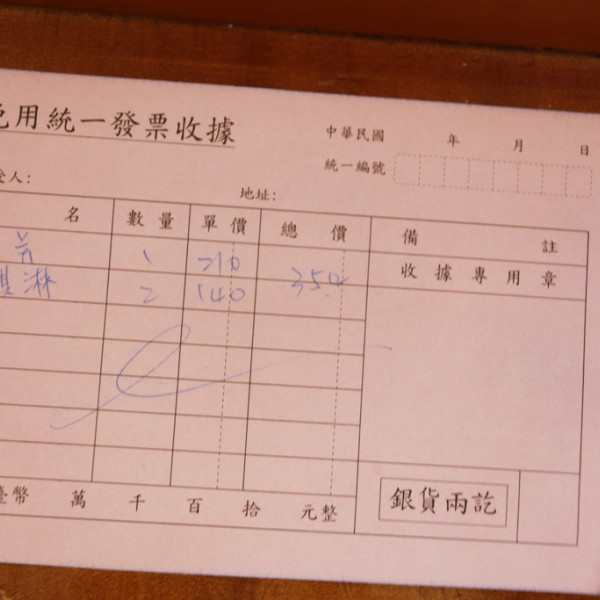 免用統一發票收據
中華民國 年 月 日
統一編號
受人：
地址：
名 數量 單價 總價 備註
芳 1 210 350
淇淋 2 140
收據專用章
臺幣 萬 千 百 拾 元整
銀貨兩訖